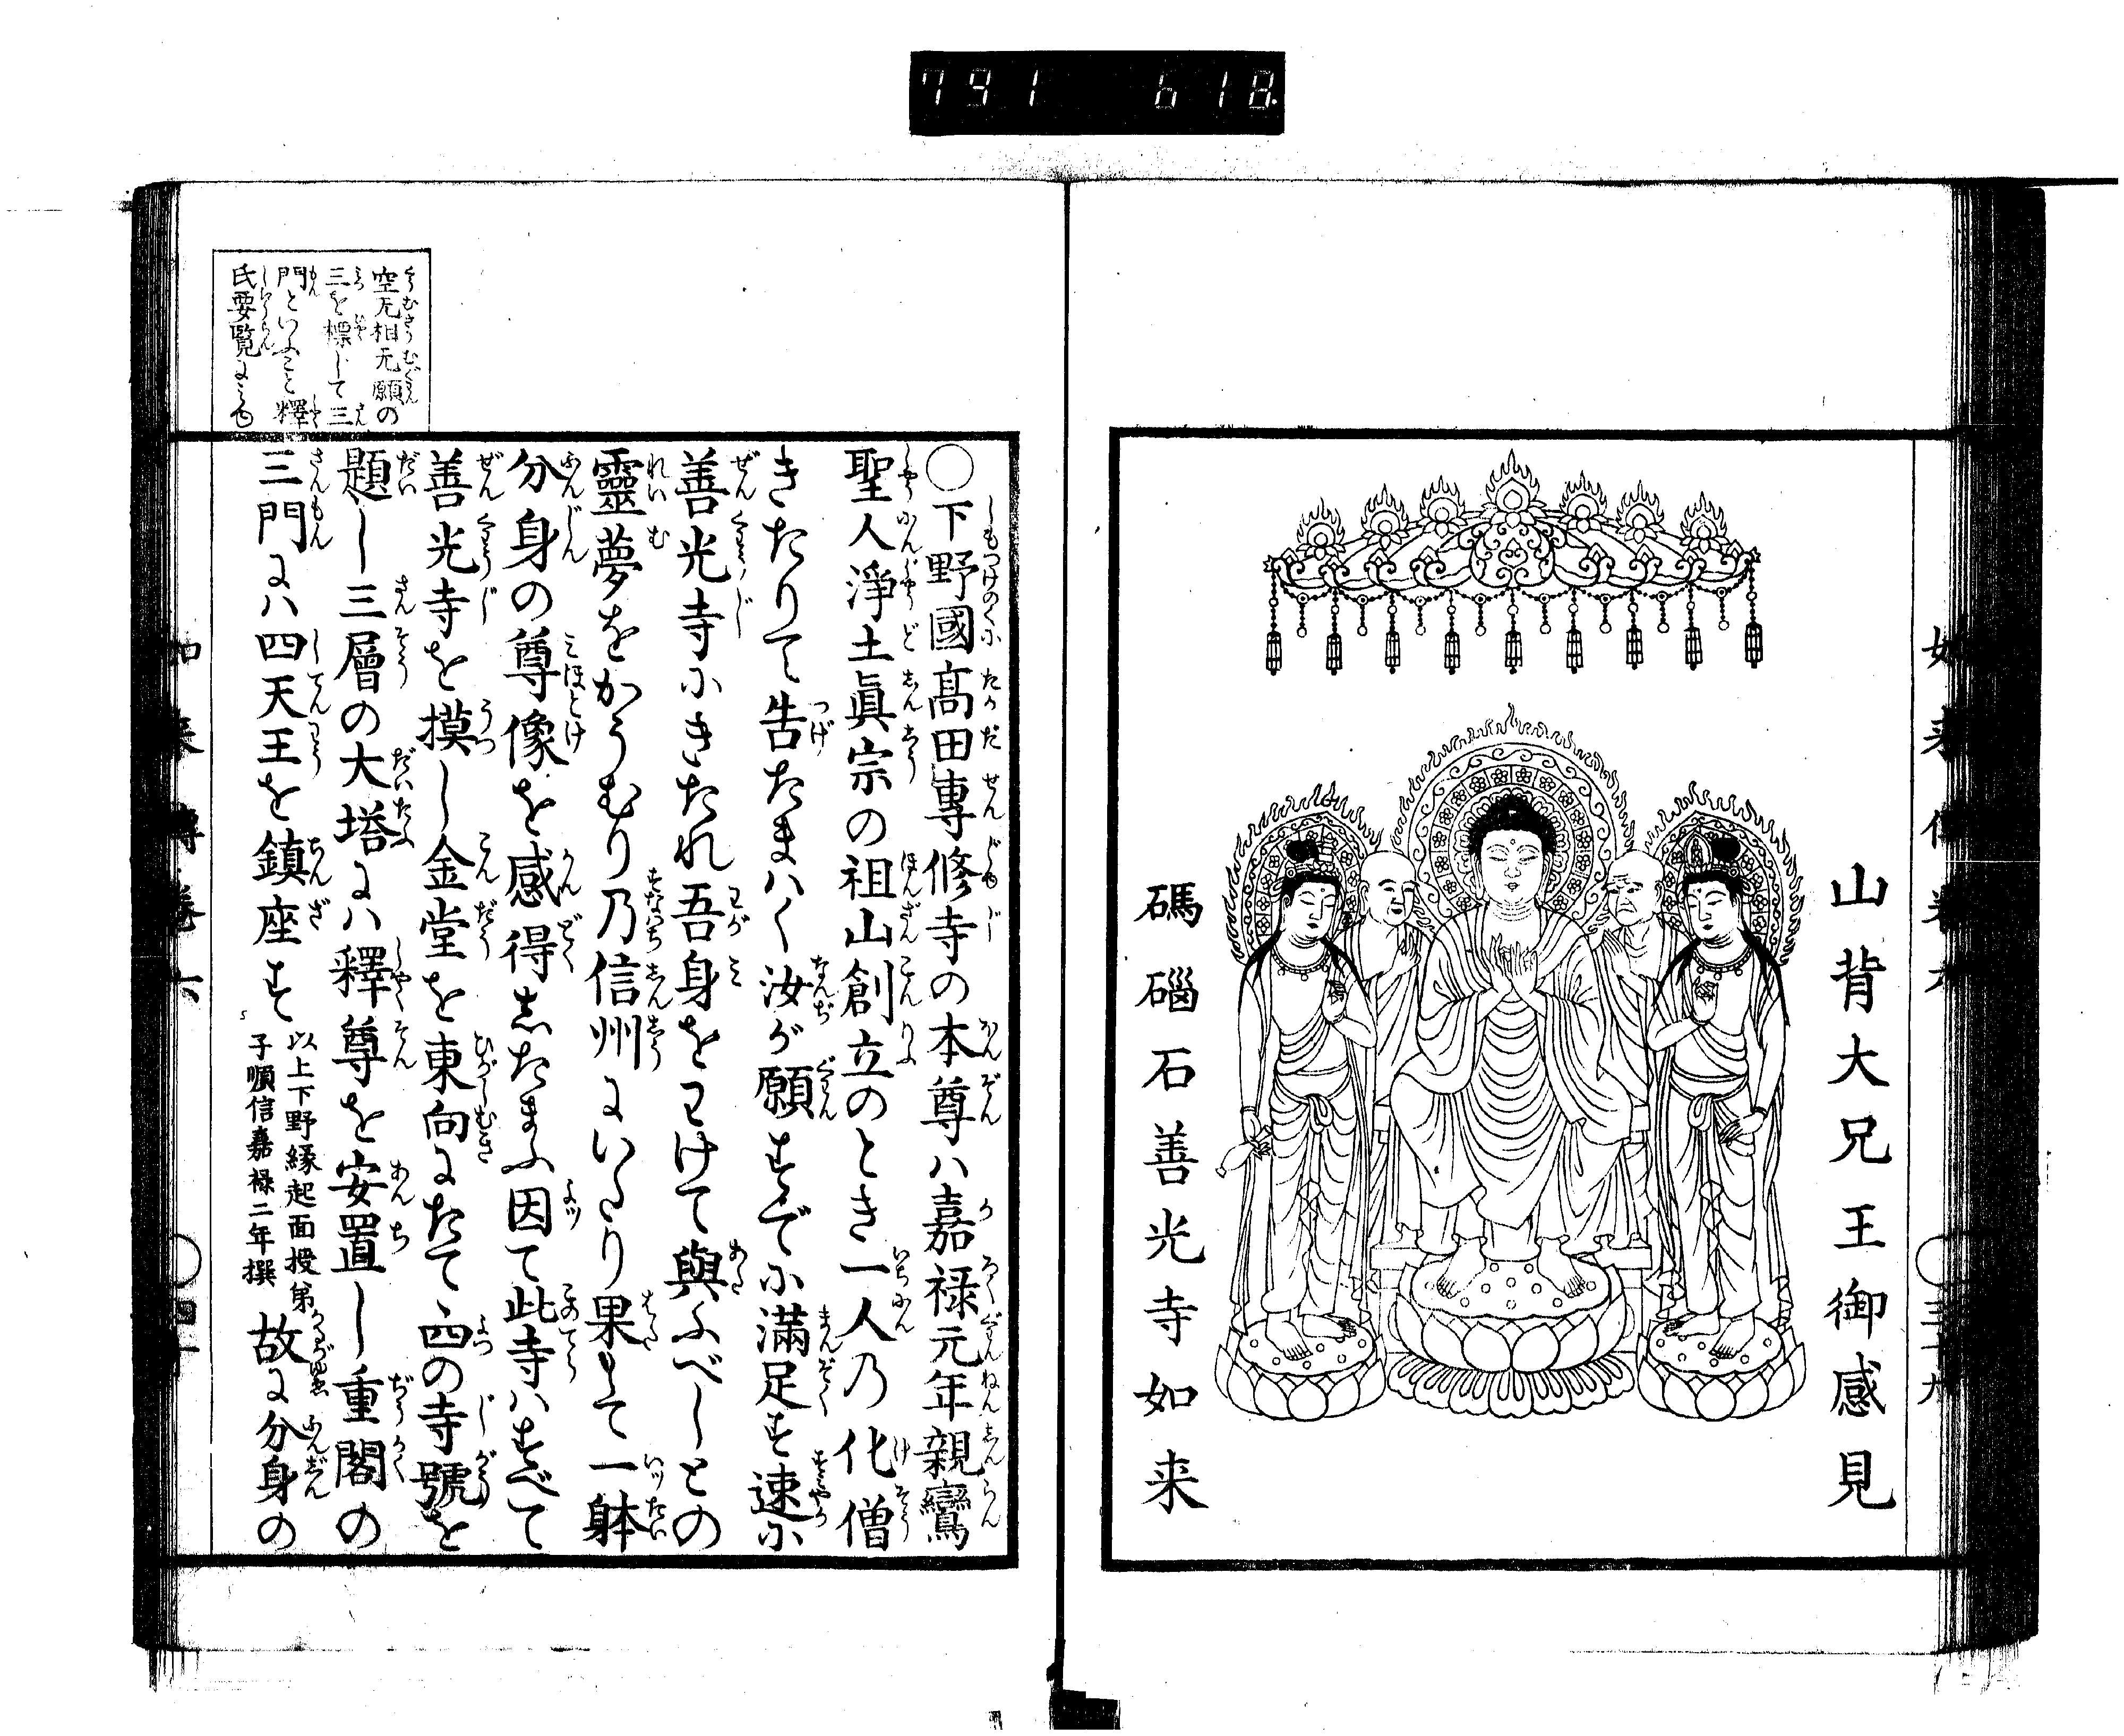 791 618
山背大兄王御感見
碼碯石善光寺如来
空无相无願の
三を標じて三
門といふこと釋
氏要覧に
○下野國髙田專修寺の本尊ハ嘉禄元年親鸞
聖人淨土眞宗の祖山創立のとき一人乃化僧
きたりて告たまハく汝が願すでに滿足す速に
善光寺にきたれ吾身をわけて與ふべしとの
靈夢をかうむり乃信州にいたり果して一躰
分身の尊像を感得したまふ因て此寺ハすべて
善光寺を摸し金堂を東向にたて四の寺號を
題し三層の大塔にハ釋尊を安置し重閣の
三門にハ四天王を鎮座す
以上下野縁起面授弟
子順信嘉禄二年撰
故に分身の